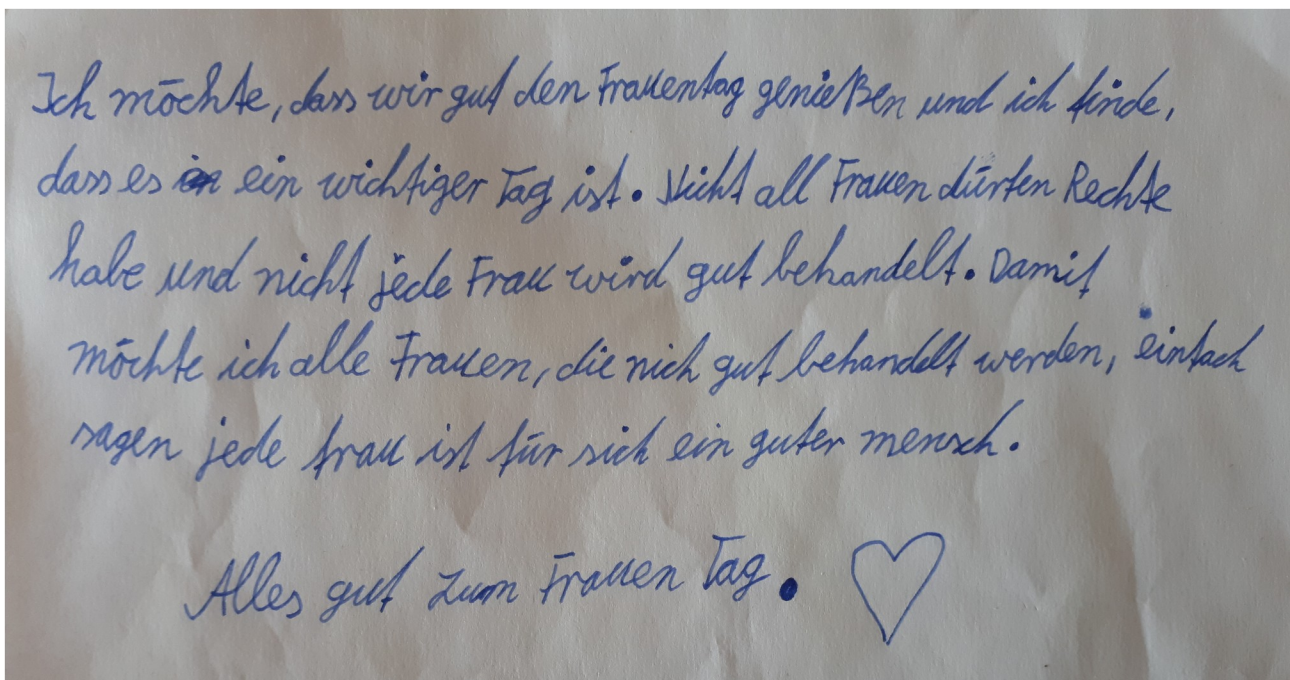 Ich möchte, dass wir gut den Frauentag genießen und ich finde,
dass es ein wichtiger Tag ist. Nicht all Frauen dürfen Rechte
habe und nicht jede Frau wird gut behandelt. Damit
möchte ich alle Frauen, die nich gut behandelt werden, einfach
sagen jede frau ist für sich ein guter mensch.
Alles gut zum Frauen Tag.